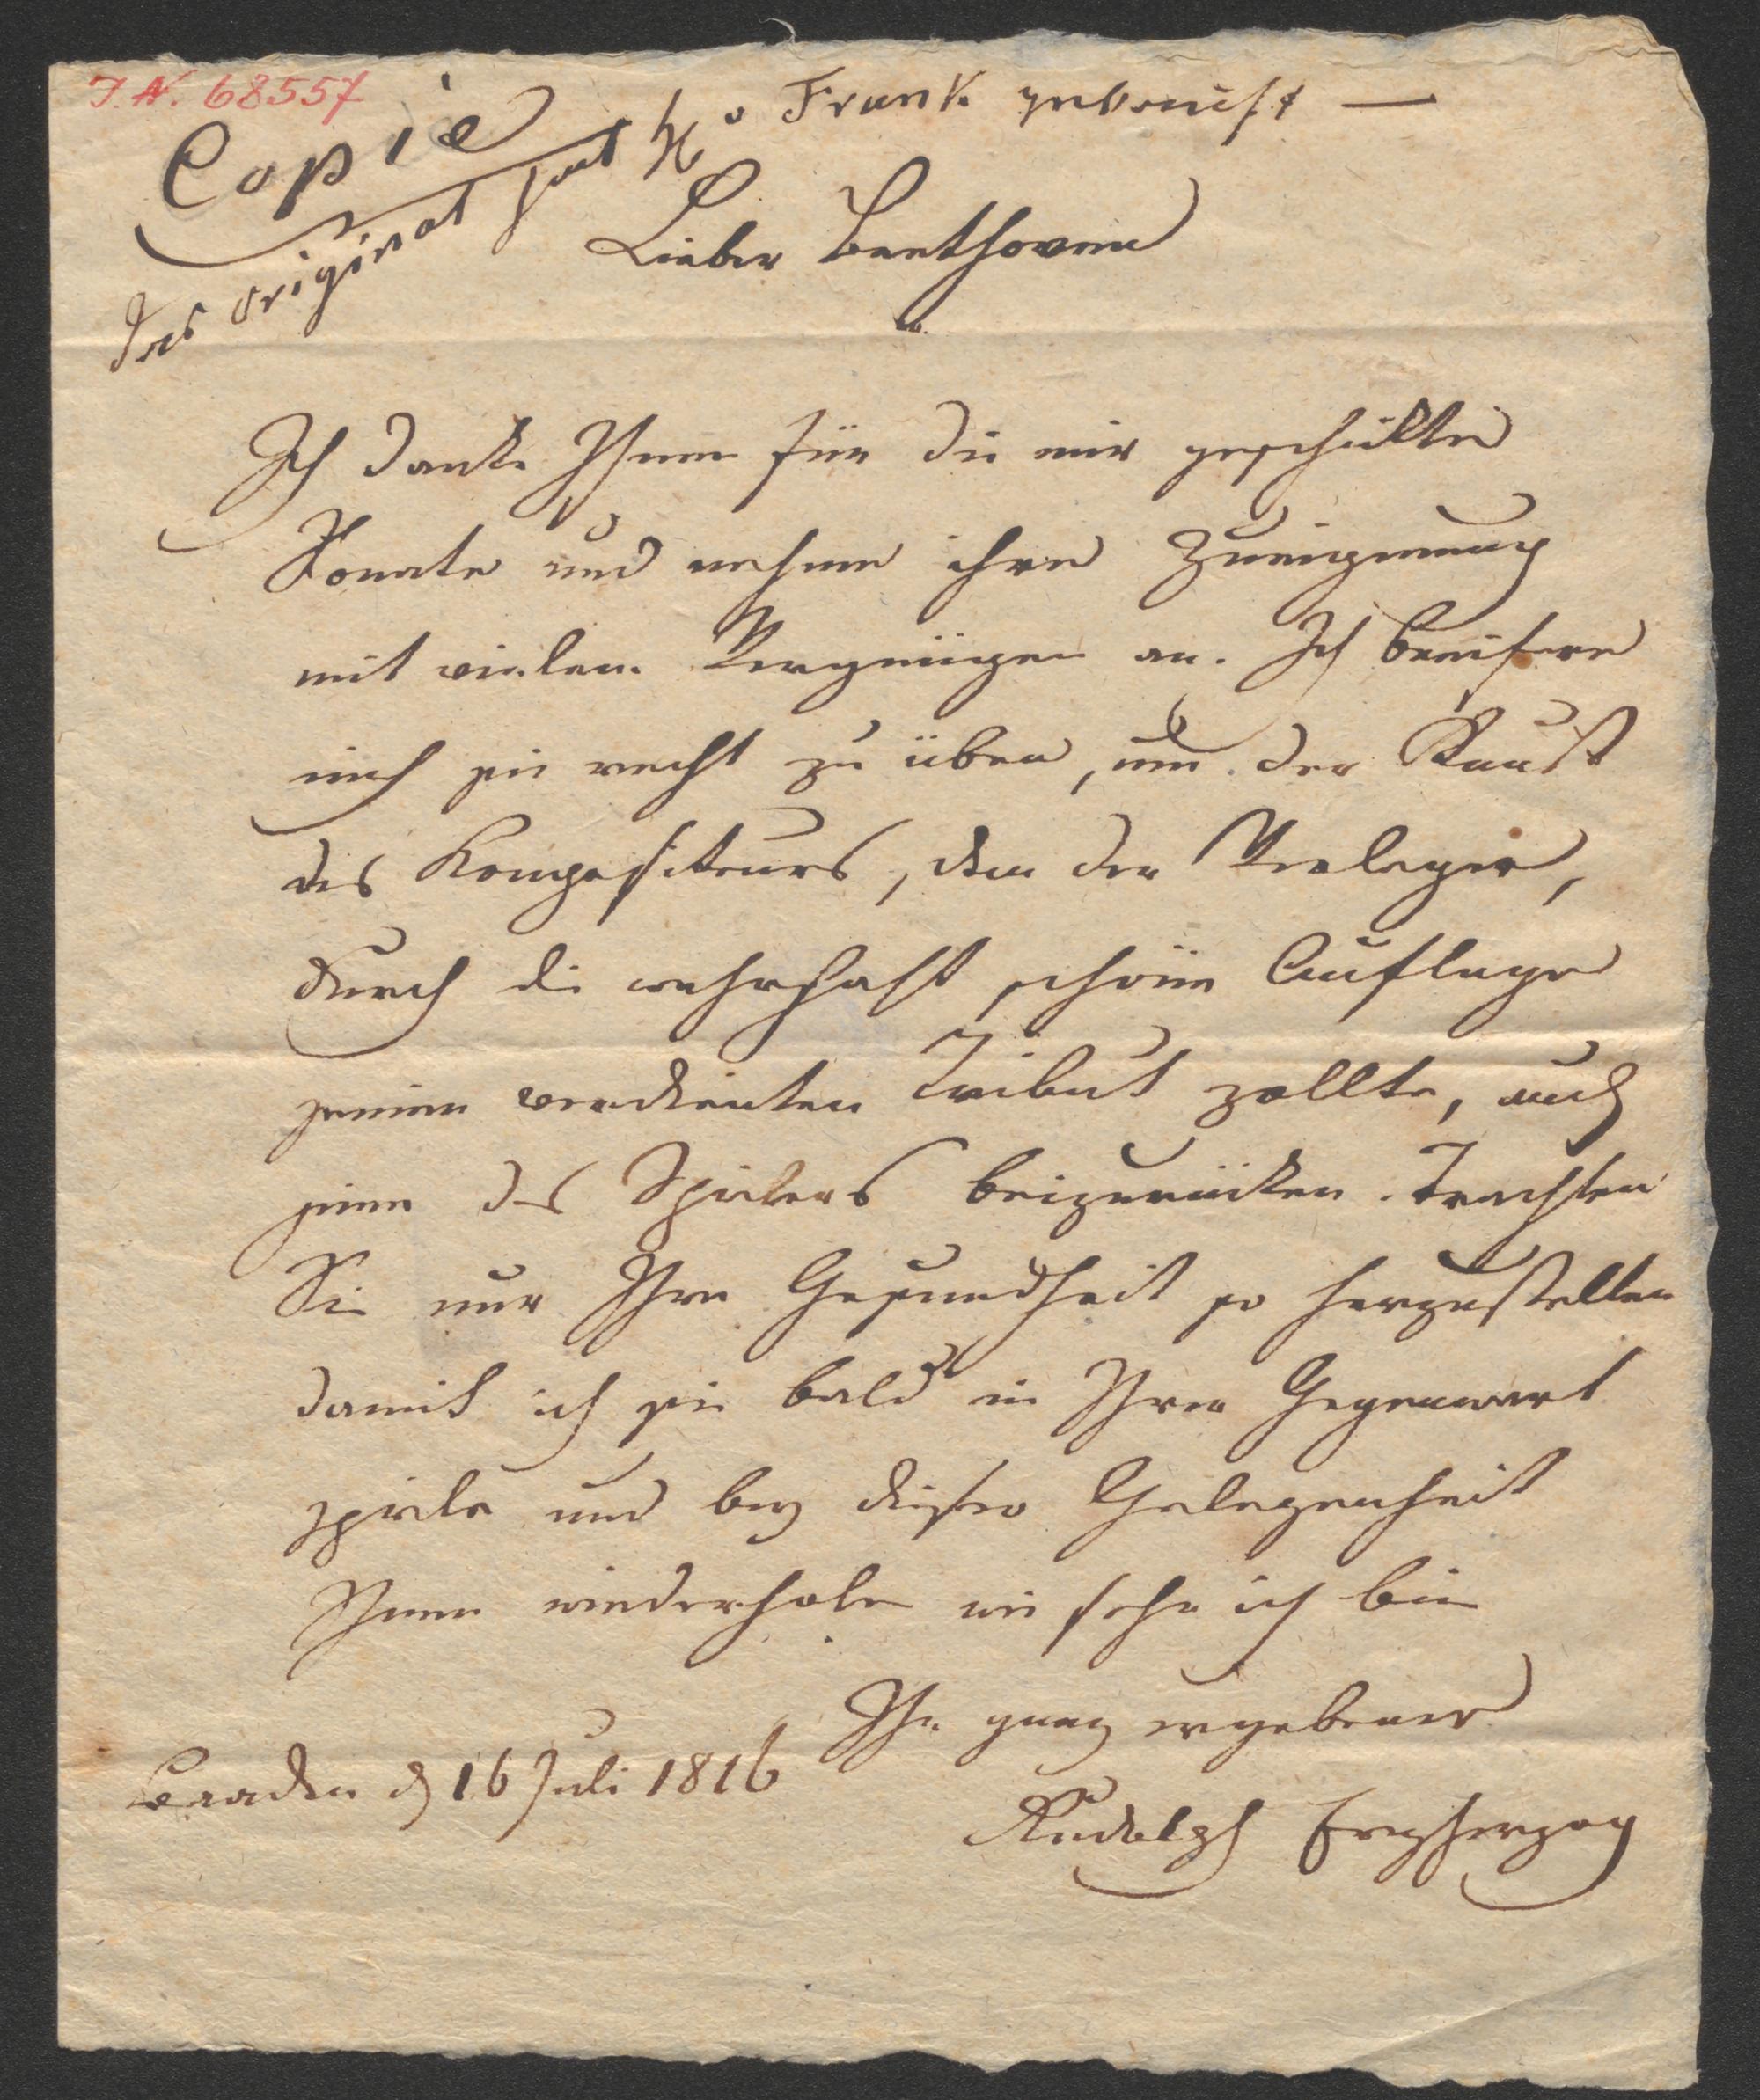 I. N. 68557
Copie
das original hat H. Frank gekauft —
Lieber Beethoven
Ich danke Ihnen für die mir geschickte
Sonate und nehme ihre Zueignung
mit vielem Vergnügen an. Ich beeifere
mich sie recht zu üben, um der Kunst
des Kompositeurs, dem der Verleger,
durch die wahrhaft schöne Auflage
seinen verdienten Tribut zollte, auch
jene des Spielers beizurücken. Trachten
Sie nur Ihre Gesundheit so herzustellen
damit ich sie bald in Ihrer Gegenwart
spiele und bey dieser Gelegenheit
Ihnen wiederhole wie sehr ich bin
Ihr ganz ergebener
Baaden d 16 Juli 1816
Rudolph Erzherzog